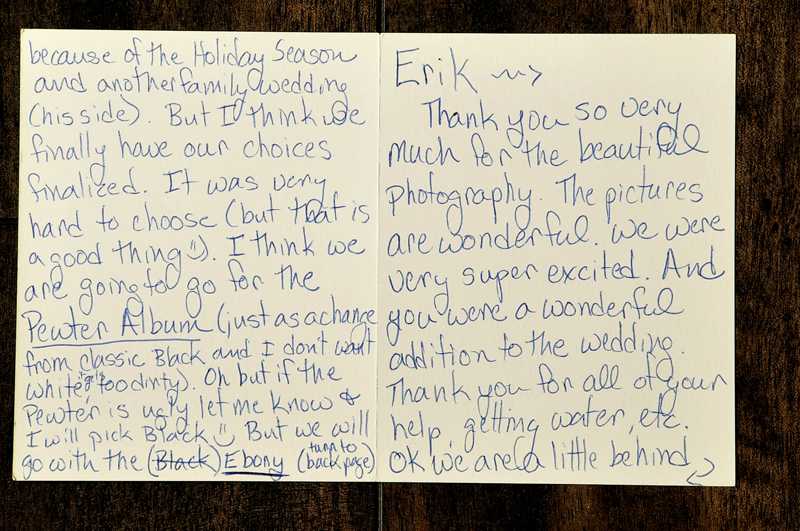 Erik ~~>
Thank you so very
much for the beautiful
photography. The pictures
are wonderful. We were
very super excited. And
you were a wonderful
addition to the wedding.
Thank you for all of your
help, getting water, etc.
Ok we are a little behind
because of the Holiday Season
and another family wedding
(his side). But I think we
finally have our choices
finalized. It was very
hard to choose (but that is
a good thing :)). I think we
are going to go for the
Pewter Album (just as a change
from classic Black and I don't want
white it gets too dirty). Oh but if the
Pewter is ugly let me know &
I will pick Black :) But we will
go with the (Black) Ebony (turn to
back page)